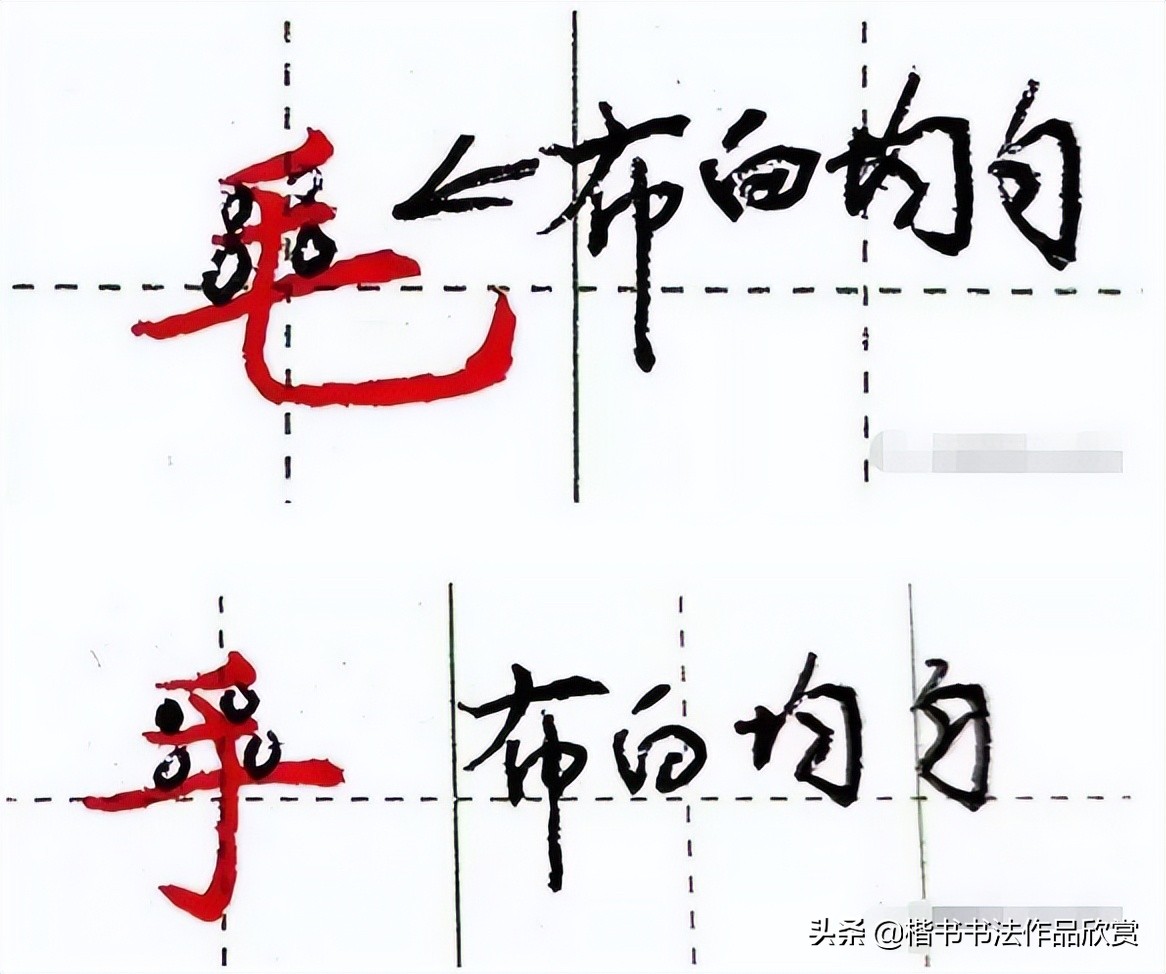 毛 ←布白均匀
乎 布白均匀
头条 @楷书书法作品欣赏